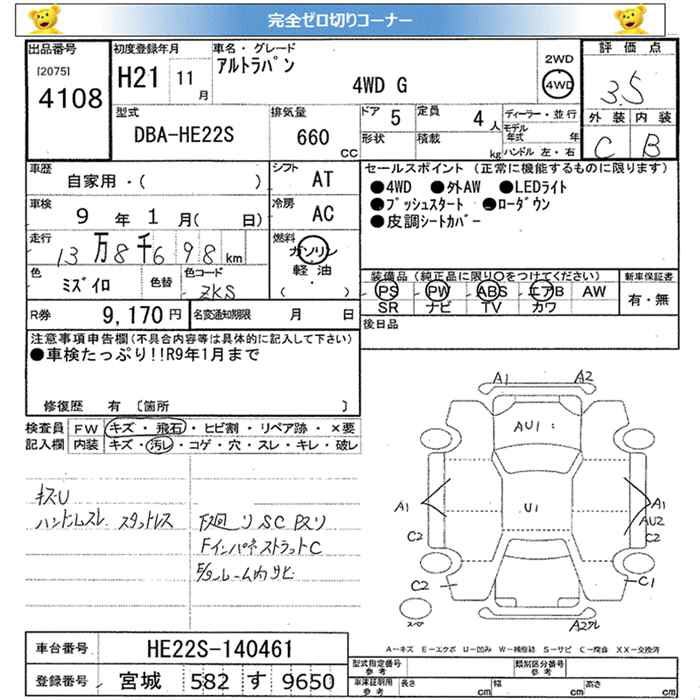 完全ゼロ切りコーナー
出品番号 初度登録年月 車名・グレード 評価点
[2075] 4108 H21 11月 アルトラパン 4WD G 2WD 4WD 3.5
型式 DBA-HE22S 排気量 660 CC ドア 5 定員 4人 ディーラー・並行 外装 内装
形状 積載 kg モデル年式 年 ハンドル 左・右 C B
車歴 自家用・( ) シフト AT セールスポイント(正常に機能するものに限ります)
車検 9年1月( 日) 冷房 AC ●4WD ●外AW ●LEDライト
●プッシュスタート ●ローダウン
●皮調シートカバー
走行 13万8千698km 燃料 ガソリン 軽油 ( )
色 ミズイロ 色替 色コード ZKS
装備品(純正品に限り○をつけてください) 新車保証書
PS PW ABS エアB AW 有・無
SR ナビ TV カワ
R券 9,170円 名変通知期限 月 日 後日品
注意事項申告欄(不具合内容等は具体的に記入して下さい)
●車検たっぷり!!R9年1月まで
修復歴 有 〔箇所 〕
検査員 FW キズ・飛石・ヒビ割・リペア跡・×要
記入欄 内装 キズ・汚レ・コゲ・穴・スレ・キレ・破レ
キズU
ハンドルスレ スタッドレス
下廻リSC Pスリ
FインパネストラットC
F/フレーム内サビ
A1 A2
AU1
A1 U1 A1
AU2
C2 C2
C2 C1
スペア
A2
A-キズ E-エクボ U-凹み W-補修跡 S-サビ C-腐食 XX-交換済
車台番号 HE22S-140461
登録番号 宮城 582 す 9650
型式指定番号 参考 類別区分番号 参考
車検証記載 参考 長さ cm 幅 cm 高さ cm